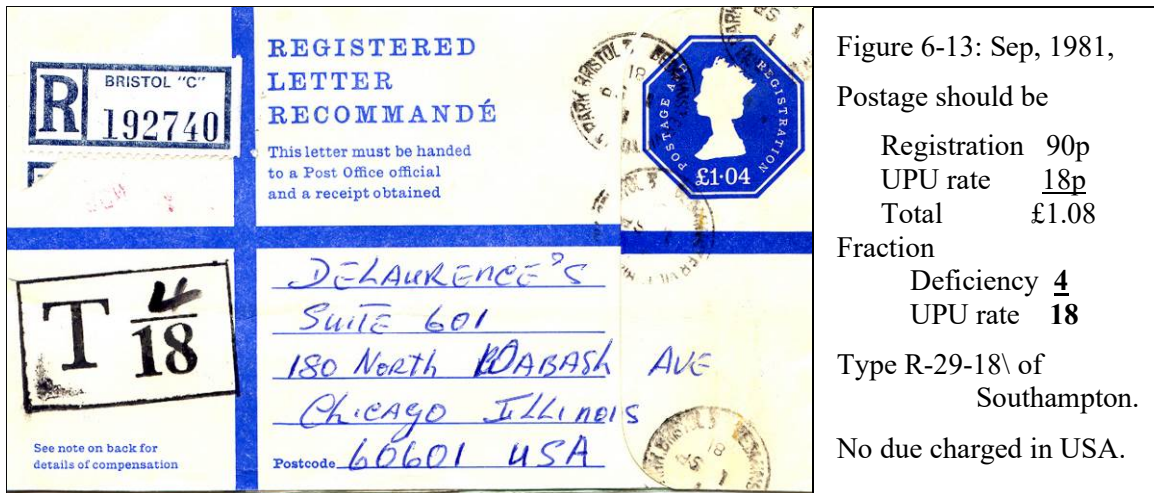 REGISTERED
LETTER
RECOMMANDÉ
This letter must be handed
to a Post Office official
and a receipt obtained
R
BRISTOL "C"
192740
POSTAGE AND REGISTRATION
£1·04
T 4
18
DELAURENCE'S
SUITE 601
180 NORTH WABASH AVE
CHICAGO ILLINOIS
Postcode 60601 USA
See note on back for
details of compensation
Figure 6-13: Sep, 1981,
Postage should be
Registration 90p
UPU rate 18p
Total £1.08
Fraction
Deficiency 4
UPU rate 18
Type R-29-18\ of
Southampton.
No due charged in USA.